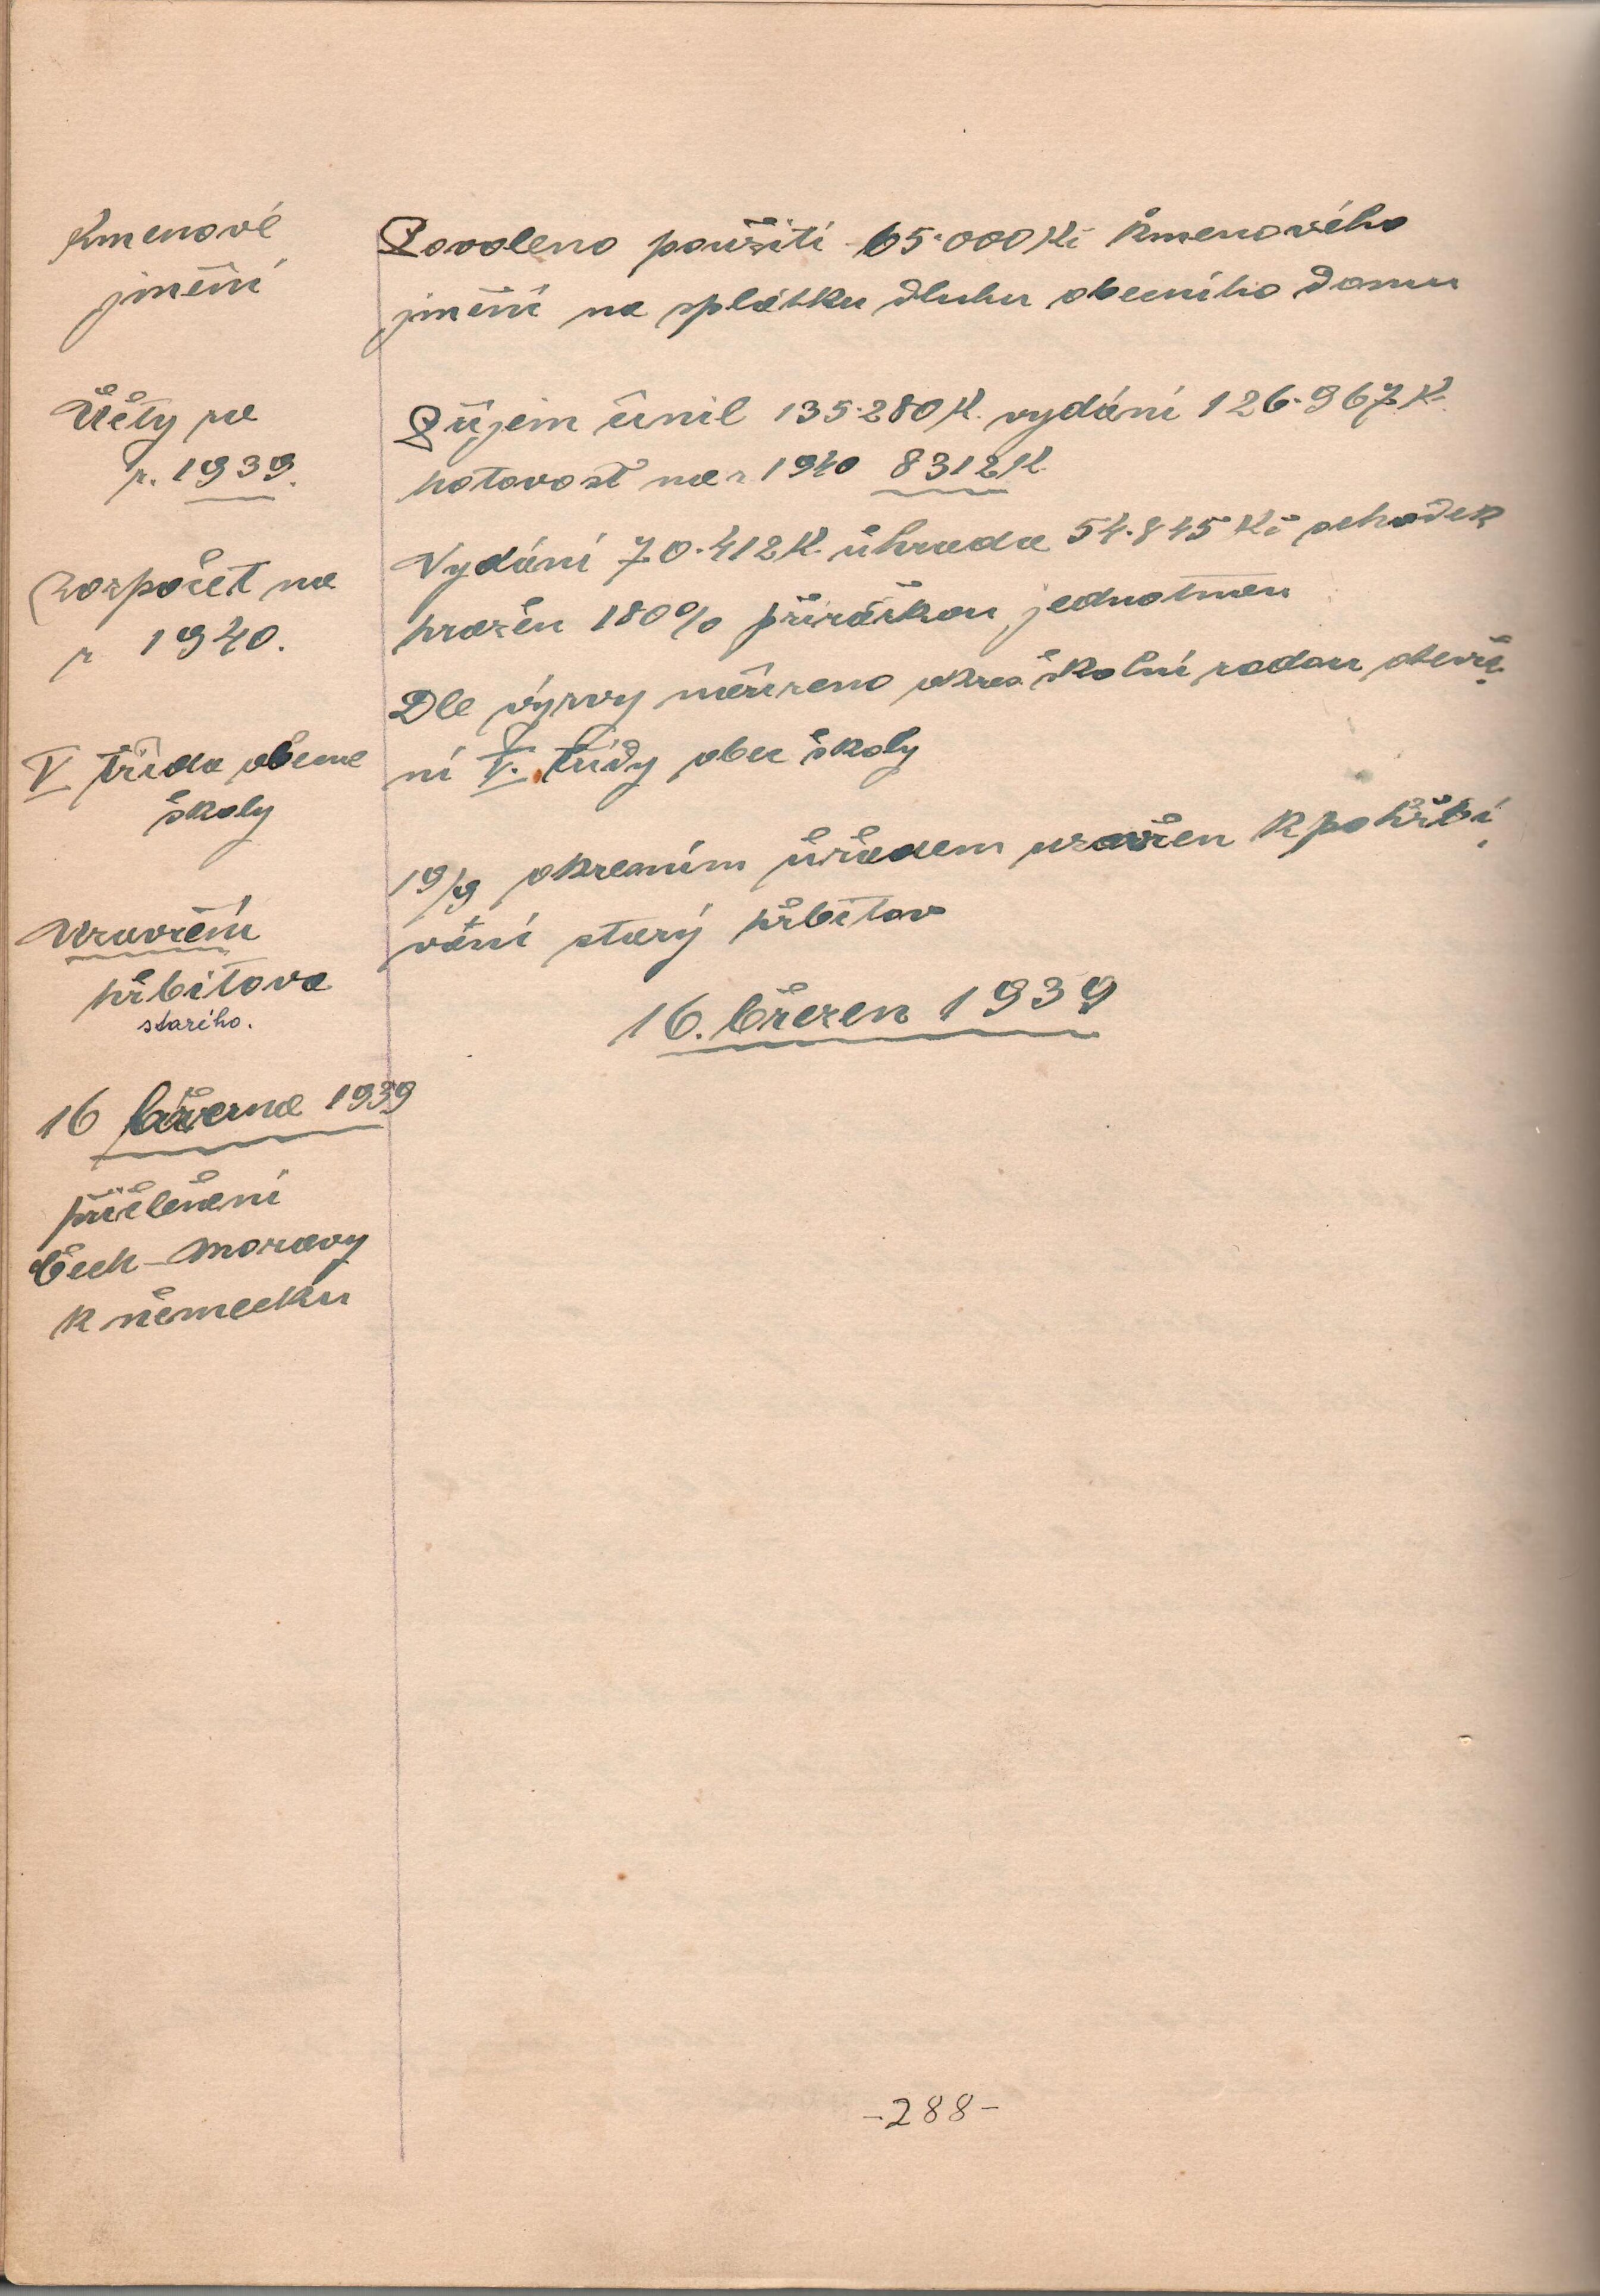 Kmenové
jmění
Povoleno použíti 65.000 Kč kmenového
jmění na splátku dluhu obecního domu
Účty za
r. 1939.
Příjem činil 135.280 K. vydání 126.967 K.
hotovost na r 1940 8312 K
Rozpočet na
r 1940.
Vydání 70.412 K. úhrada 54.845 Kč schodek
hražen 180% přirážkou jednotnou
V třída obecné
školy
Dle výzvy nařízeno okres školní radou otevře-
ní V. třídy obec školy
Uzavření
hřbitova
starého.
19/9 okresním úřadem uzavřen k pohřbí-
vání starý hřbitov
16. březen 1939
16 března 1939
přičlenění
Čech - Moravy
k německu
-288-